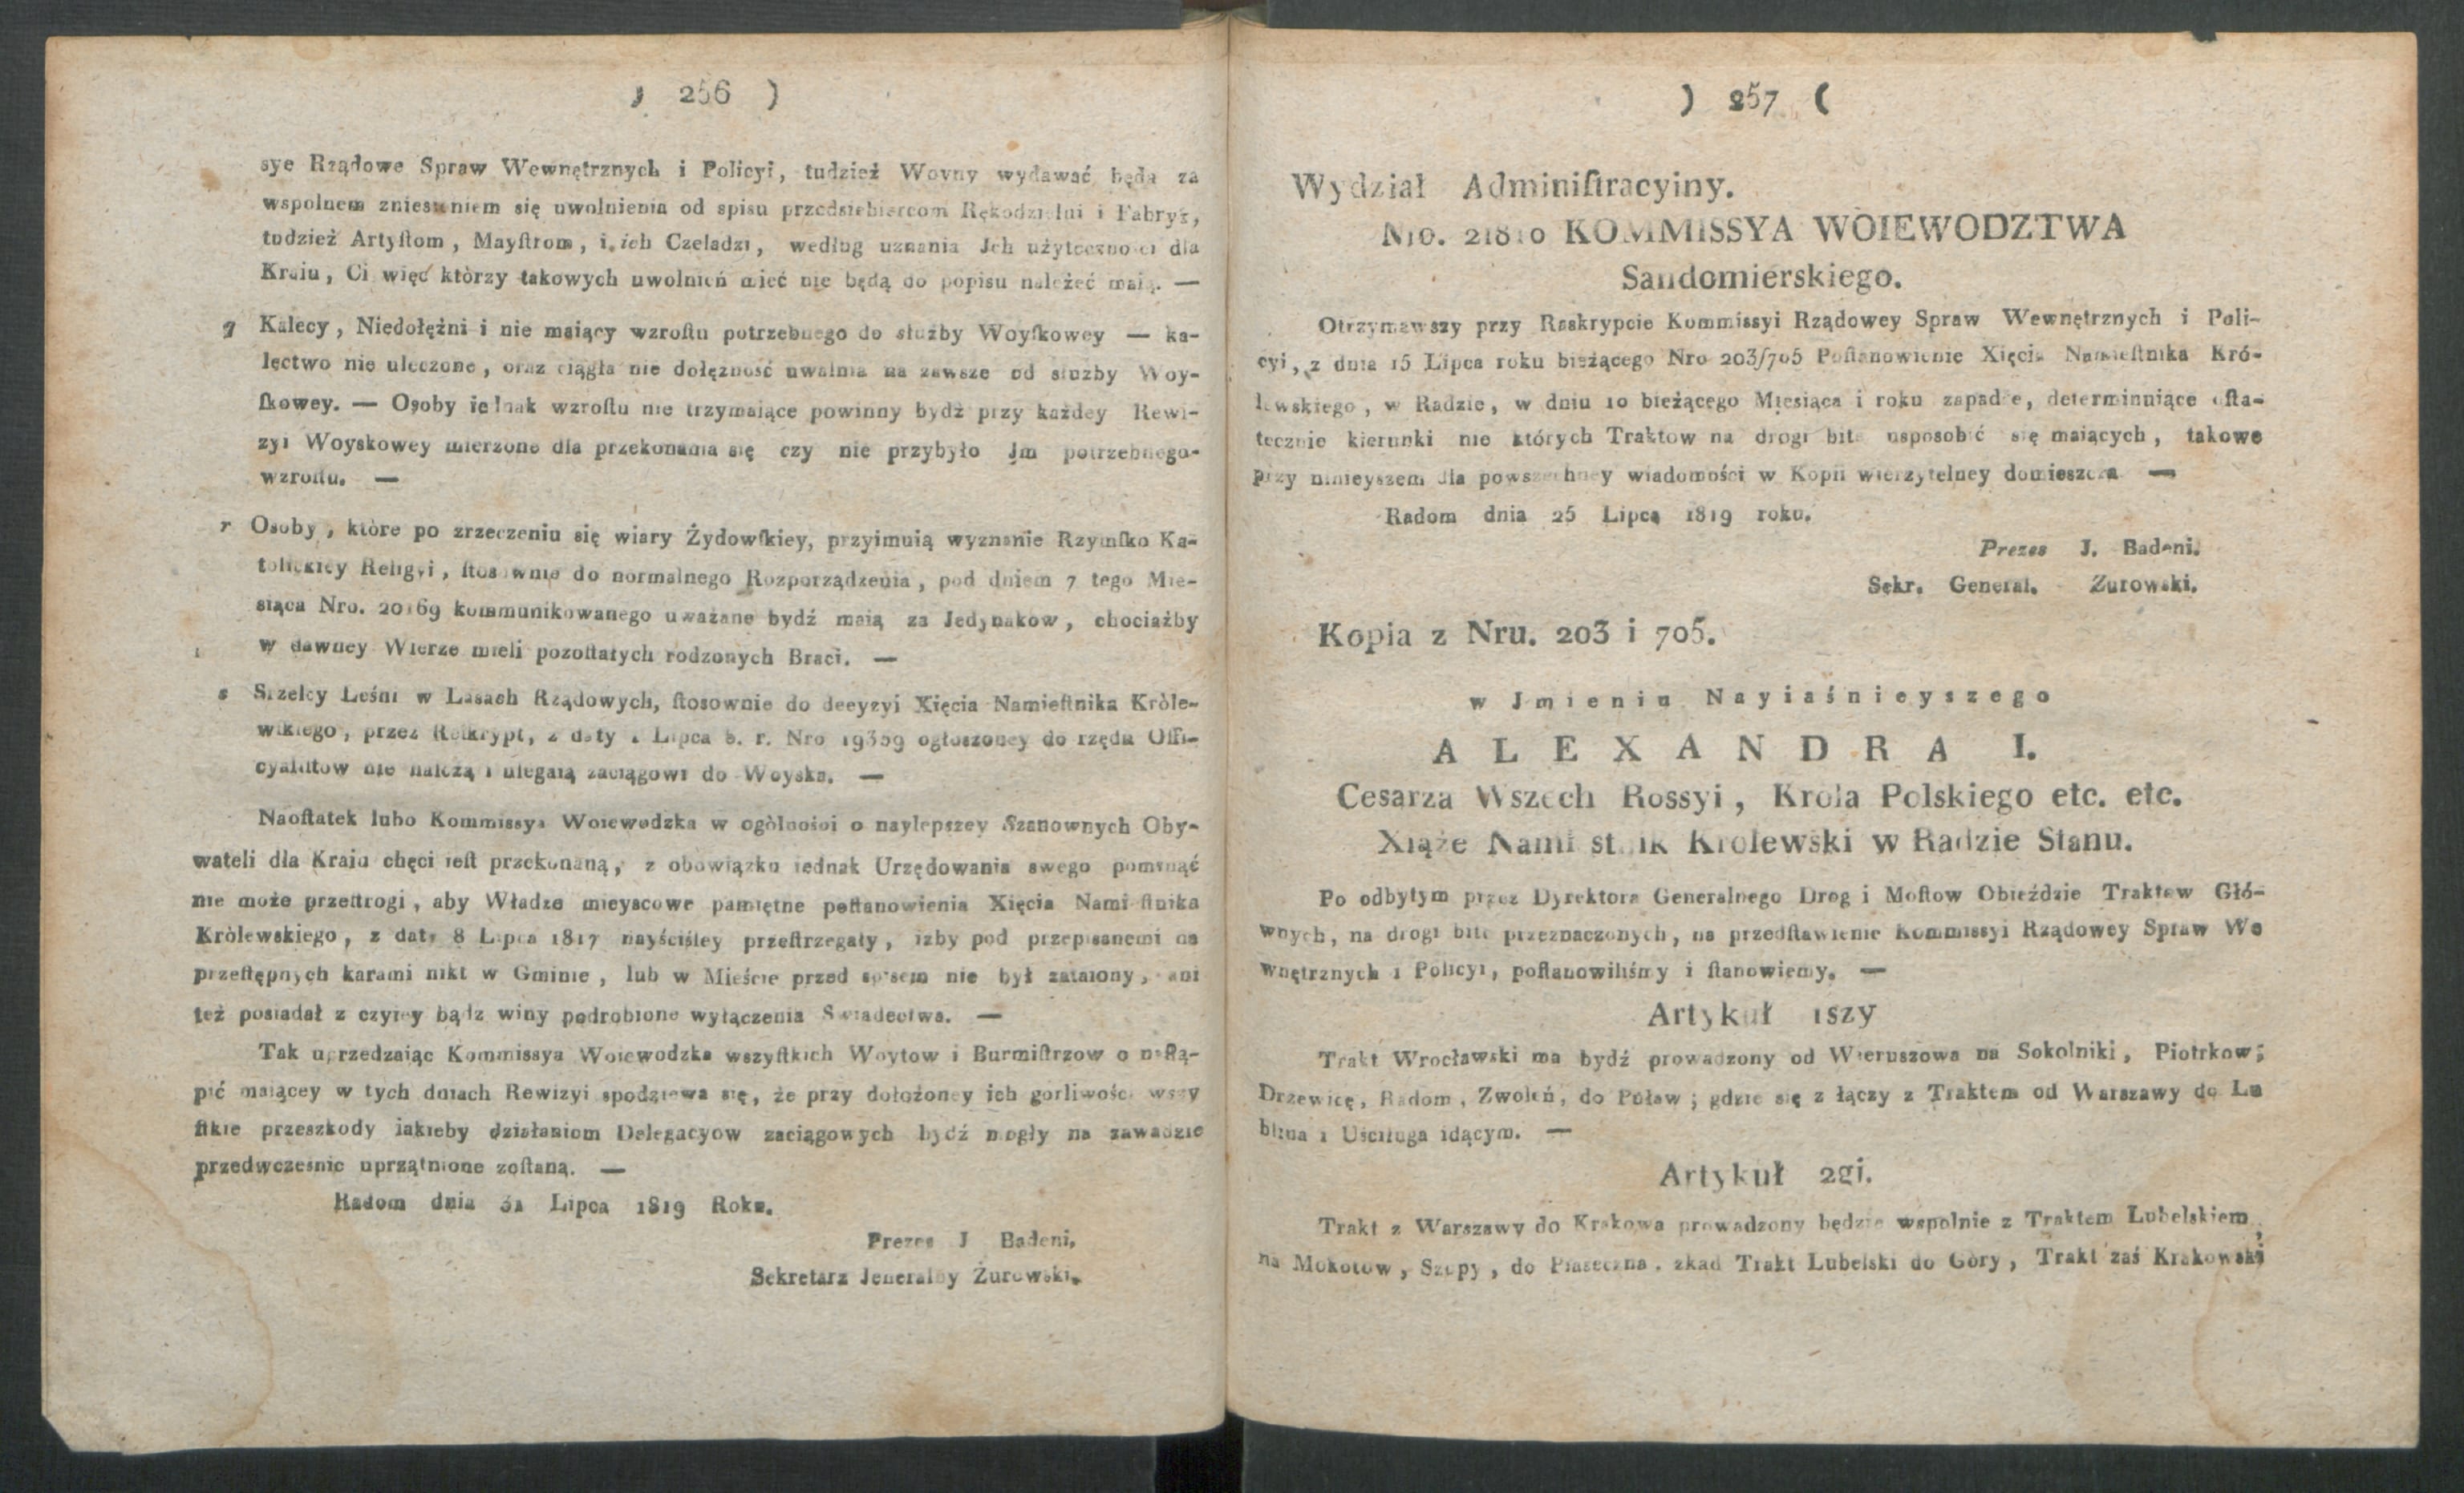 ) 256 )
sye Rządowe Spraw Wewnętrznych i Policyi, tudzież Woyny wydawać będą za
wspolnem zniesieniem się uwolnienia od spisu przedsiebiercom Rękodzielni i Fabryk,
tudzież Artyſtom, Mayſtrom, i ich Czeladzi, według uznania Jch użyteczności dla
Kraiu, Ci więc którzy takowych uwolnień mieć nie będą do popisu należeć maią. —
q Kalecy, Niedołężni i nie maiący wzroſtu potrzebnego do służby Woyſkowey — ka-
lęctwo nie uleczone, oraz ciągła nie dołężność uwalnia na zawsze od służby Woy-
ſkowey. — Osoby iednak wzroſtu nie trzymaiące powinny bydź przy każdey Rewi-
zyi Woyskowey mierzone dla przekonania się czy nie przybyło Jm potrzebnego
wzroſtu. —
r Osoby, które po zrzeczeniu się wiary Żydowſkiey, przyimuią wyznanie Rzymſko Ka-
tolickiey Religyi, ſtosownie do normalnego Rozporządzenia, pod dniem 7 tego Mie-
siąca Nro. 20169 kommunikowanego uważane bydź maią za Jedynakow, chociażby
w dawney Wierze mieli pozoſtałych rodzonych Braci. —
s Strzelcy Leśni w Lasach Rządowych, ſtosownie do decyzyi Xięcia Namieſtnika Króle-
wſkiego, przez Reſkrypt, z daty Lipca b. r. Nro 19359 ogłoszoney do rzędu Offi-
cyaliſtow nie należą i ulegaią zaciągowi do Woyska. —
Naoſtatek lubo Kommissya Woiewodzka w ogólności o naylepszey Szanownych Oby-
wateli dla Kraiu chęci ieſt przekonaną, z obowiązku iednak Urzędowania swego pominąć
nie może przeſtrogi, aby Władze mieyscowe pamiętne poſtanowienia Xięcia Namieſtnika
Królewskiego, z daty 8 Lipca 1817 nayściśley przeſtrzegały, iżby pod przepisanemi na
przeſtępnych karami nikt w Gminie, lub w Mieście przed spisem nie był zataiony, ani
też posiadał z czyiey bądz winy podrobione wyłączenia Swiadectwa. —
Tak uprzedzaiąc Kommissya Woiewodzka wszyſtkich Woytow i Burmiſtrzow o naſtą-
pić maiącey w tych dniach Rewizyi spodziewa się, że przy dołożoney ich gorliwości wszy
ſtkie przeszkody iakieby działaniom Delegacyow zaciągowych bydź mogły na zawadzie
przedwcześnie uprzątnione zoſtaną. —
Radom dnia 31 Lipca 1819 Roku.
Prezes J Badeni,
Sekretarz Jeneralny Żurowski.
) 257 (
Wydział Adminiſtracyiny.
Nro. 21810 KOMMISSYA WOIEWODZTWA
Sandomierskiego.
Otrzymawszy przy Reskrypcie Kommissyi Rządowey Spraw Wewnętrznych i Poli-
cyi, z dnia 15 Lipca roku bieżącego Nro 203/705 Poſtanowienie Xięcia Namieſtnika Kró-
lewskiego, w Radzie, w dniu 10 bieżącego Miesiąca i roku zapadłe, determinuiące oſta-
tecznie kierunki nie których Traktow na drogi bite usposobić się maiących, takowe
przy ninieyszem dla powszechney wiadomości w Kopii wierzytelney domieszcza —
Radom dnia 25 Lipca 1819 roku.
Prezes J. Badeni.
Sekr. General. Zurowski.
Kopia z Nru. 203 i 705.
w Jmieniu Nayiaśnieyszego
ALEXANDRA I.
Cesarza Wszech Rossyi, Krola Polskiego etc. etc.
Xiąże Nami st ik Krolewski w Radzie Stanu.
Po odbytym przez Dyrektora Generalnego Drog i Moſtow Obieździe Traktow Głó-
wnych, na drogi bite przeznaczonych, na przedſtawienie Kommissyi Rządowey Spraw We
wnętrznych i Policyi, poſtanowiliśmy i ſtanowiemy. —
Artykuł 1szy
Trakt Wrocławski ma bydź prowadzony od Wieruszowa na Sokolniki, Piotrkow;
Drzewicę, Radom, Zwoleń, do Puław; gdzie się z łączy z Traktem od Warszawy do Lu
blina i Uściługa idącym. —
Artykuł 2gi.
Trakt z Warszawy do Krakowa prowadzony będzie wspolnie z Traktem Lubelskiem,
na Mokotow, Szopy, do Piaseczna, zkad Trakt Lubelski do Góry, Trakt zaś Krakowski